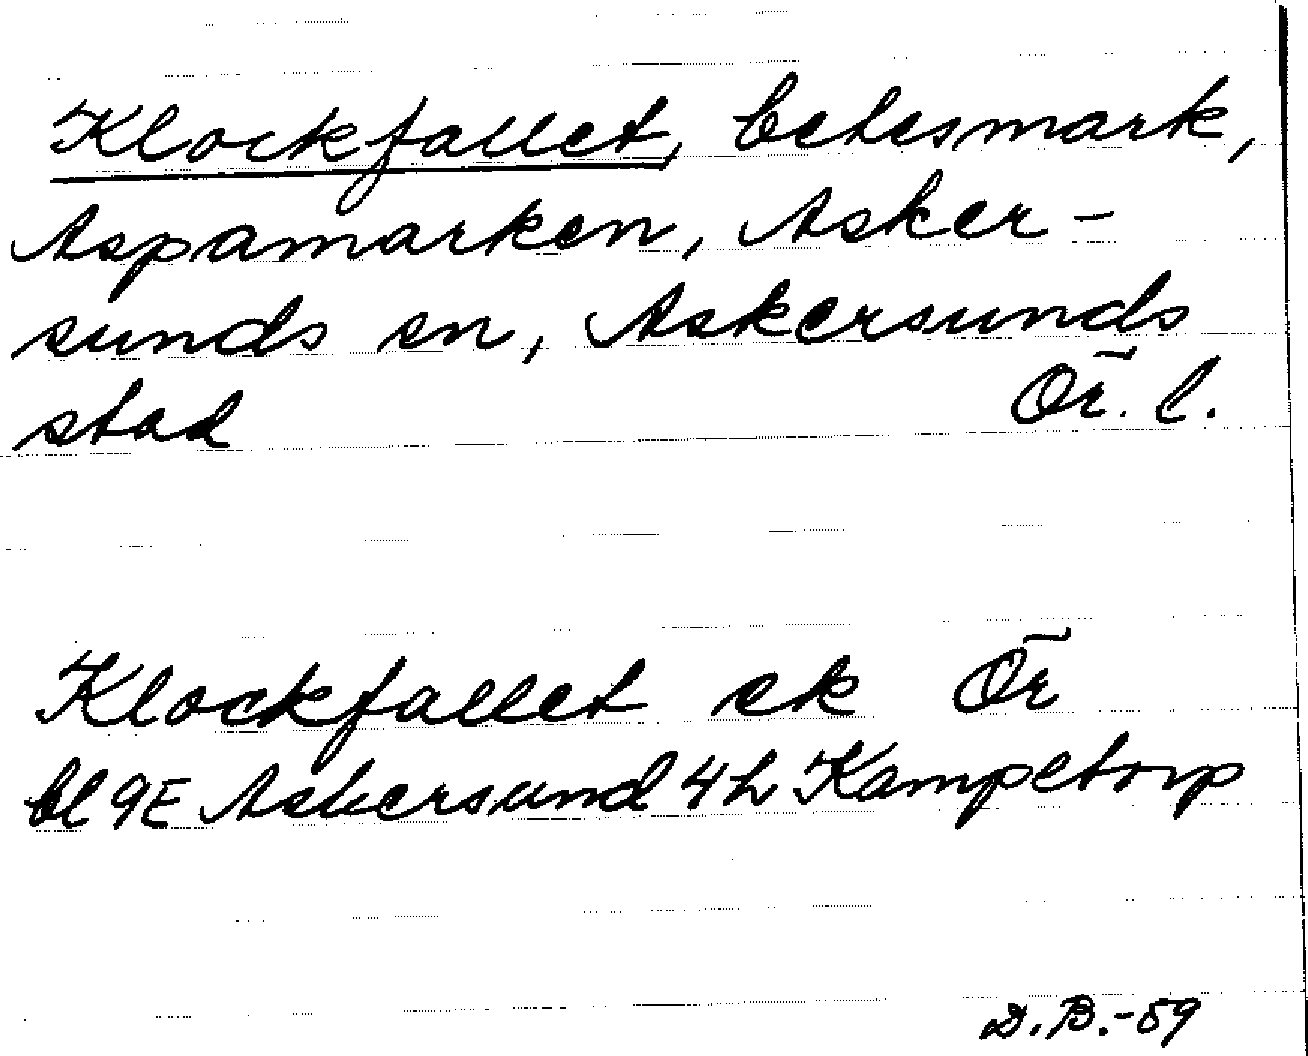 Klockfallet, betesmark,
Aspamarken, Asker-
sunds sn, Askersunds
stad Ör. l.
Klockfallet ek Ör
bl 9E Askersund 4h Kampetorp
D.B.-59